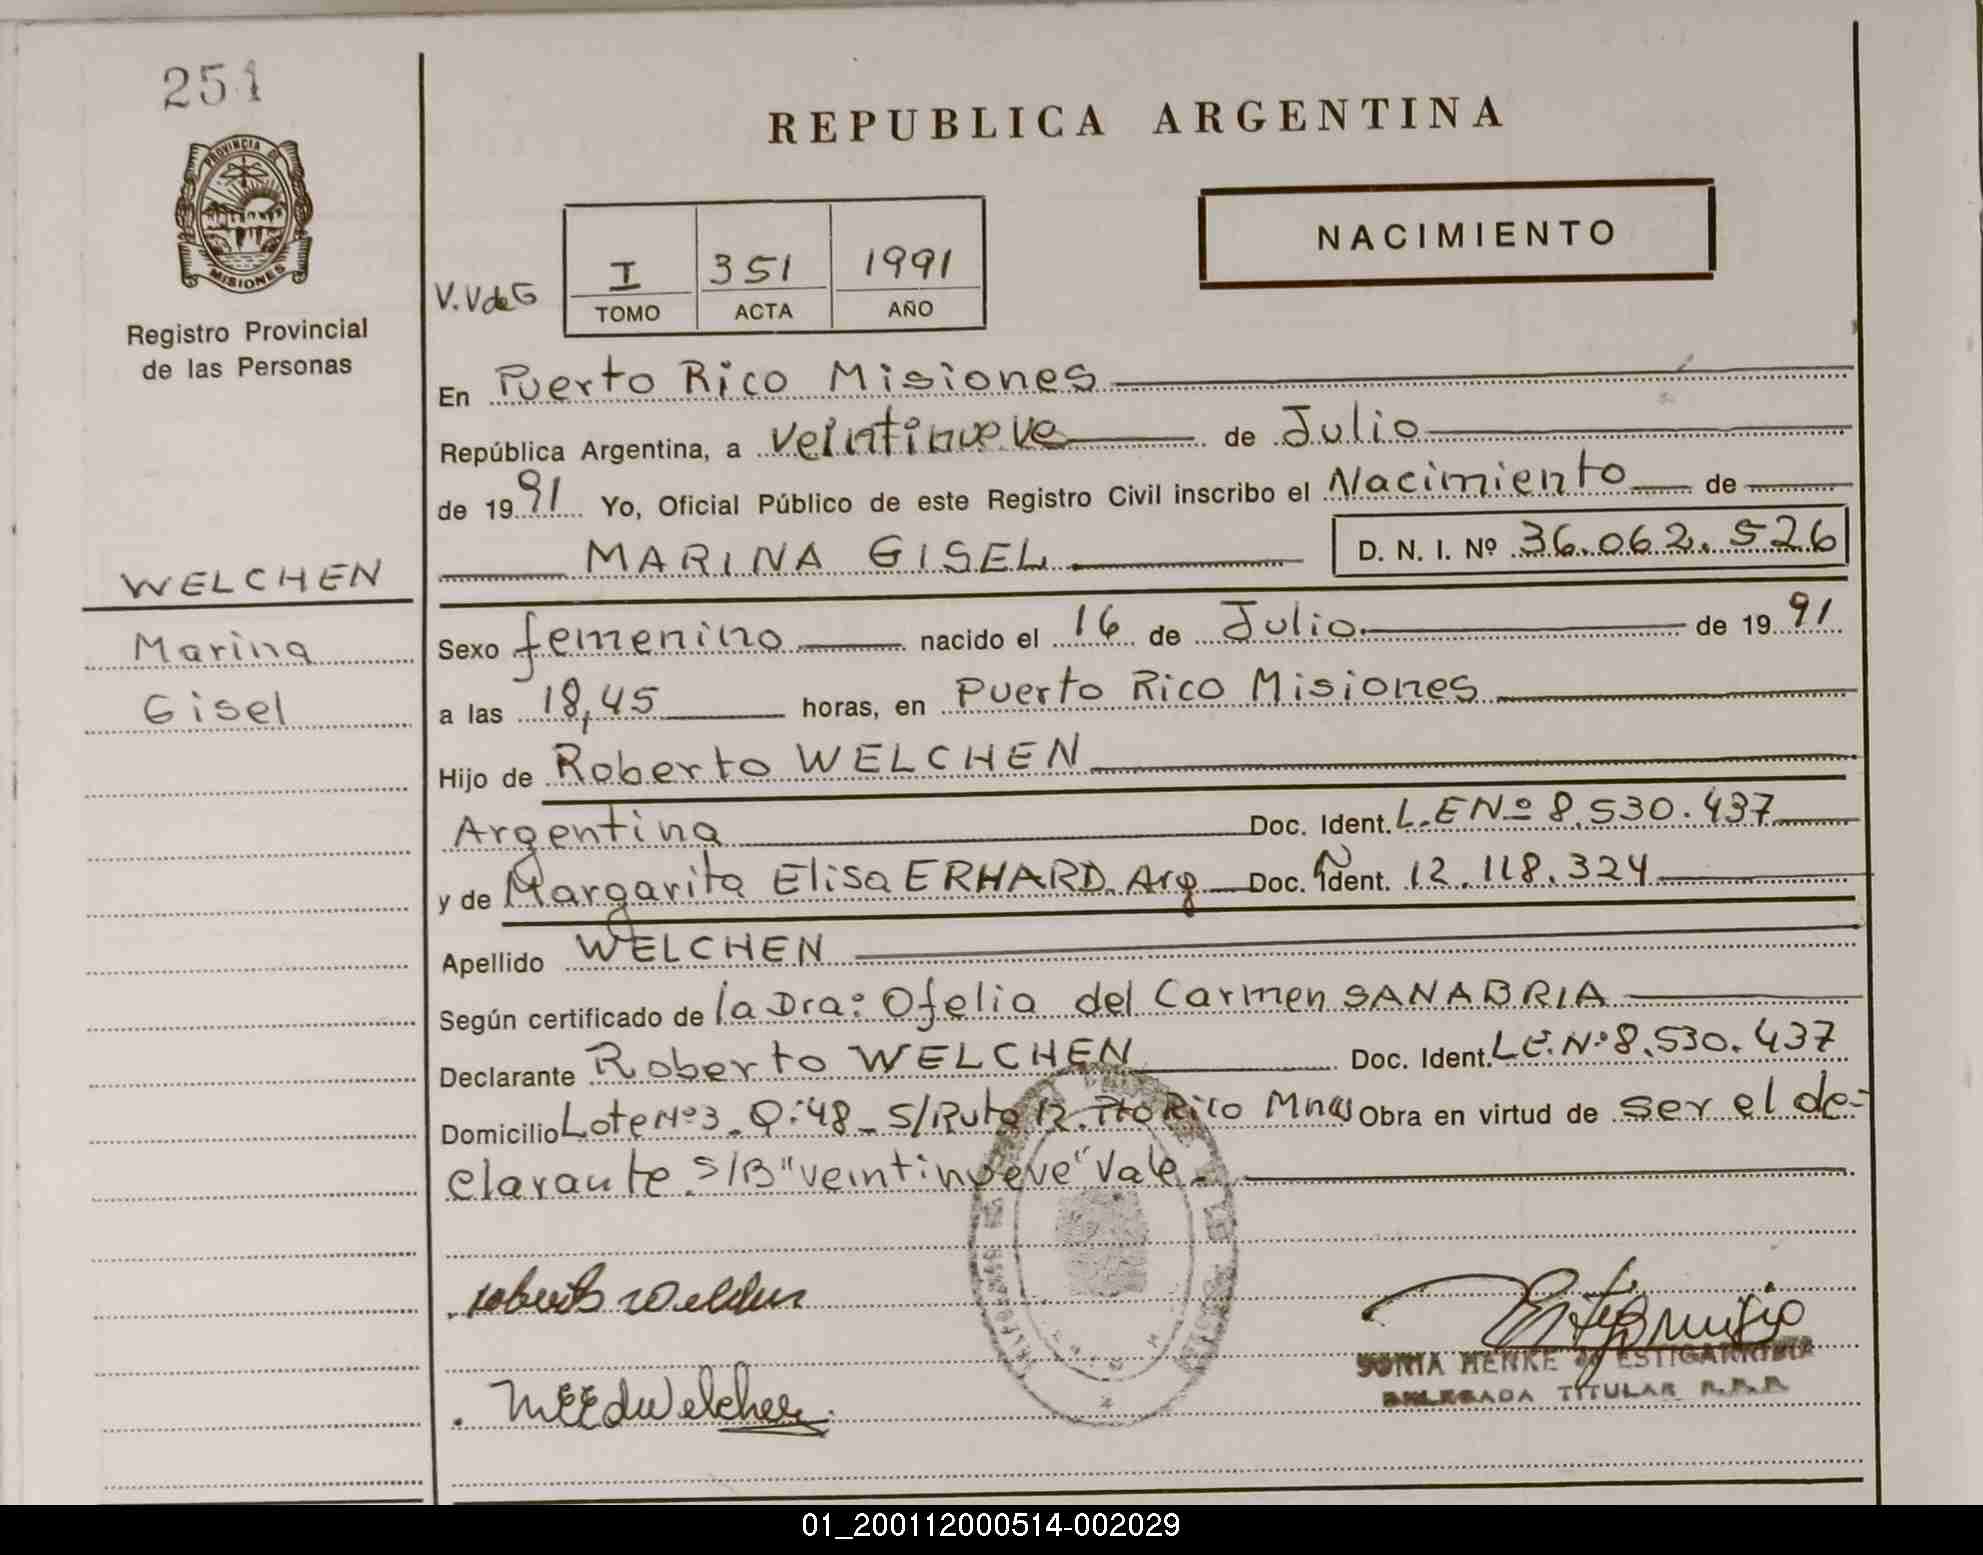 251
REPUBLICA ARGENTINA
PROVINCIA DE
MISIONES
NACIMIENTO
Registro Provincial
de las Personas
V.V de G
I 351 1991
TOMO ACTA AÑO
En Puerto Rico Misiones
República Argentina, a veintinueve de Julio
de 1991 Yo, Oficial Público de este Registro Civil inscribo el Nacimiento de
MARINA GISEL D. N. I. Nº 36.062.526
WELCHEN
Marina
Gisel
Sexo femenino nacido el 16 de Julio de 1991
a las 18,45 horas, en Puerto Rico Misiones
Hijo de Roberto WELCHEN
Argentina Doc. Ident. L.E Nº 8.530.437
y de Margarita Elisa ERHARD. Arg Doc. Ident. 12.118.324
Apellido WELCHEN
Según certificado de la Dra: Ofelia del Carmen SANABRIA
Declarante Roberto WELCHEN Doc. Ident. L.E. Nº 8.530.437
Domicilio Lote Nº 3_ Q:48_ S/Ruta 12. Pto Rico Mnes Obra en virtud de ser el de-
clarante. S/B "veintinueve" Vale.
SONIA HENKE de ESTIGARRIBIA
DELEGADA TITULAR R.P.P.
01_200112000514-002029